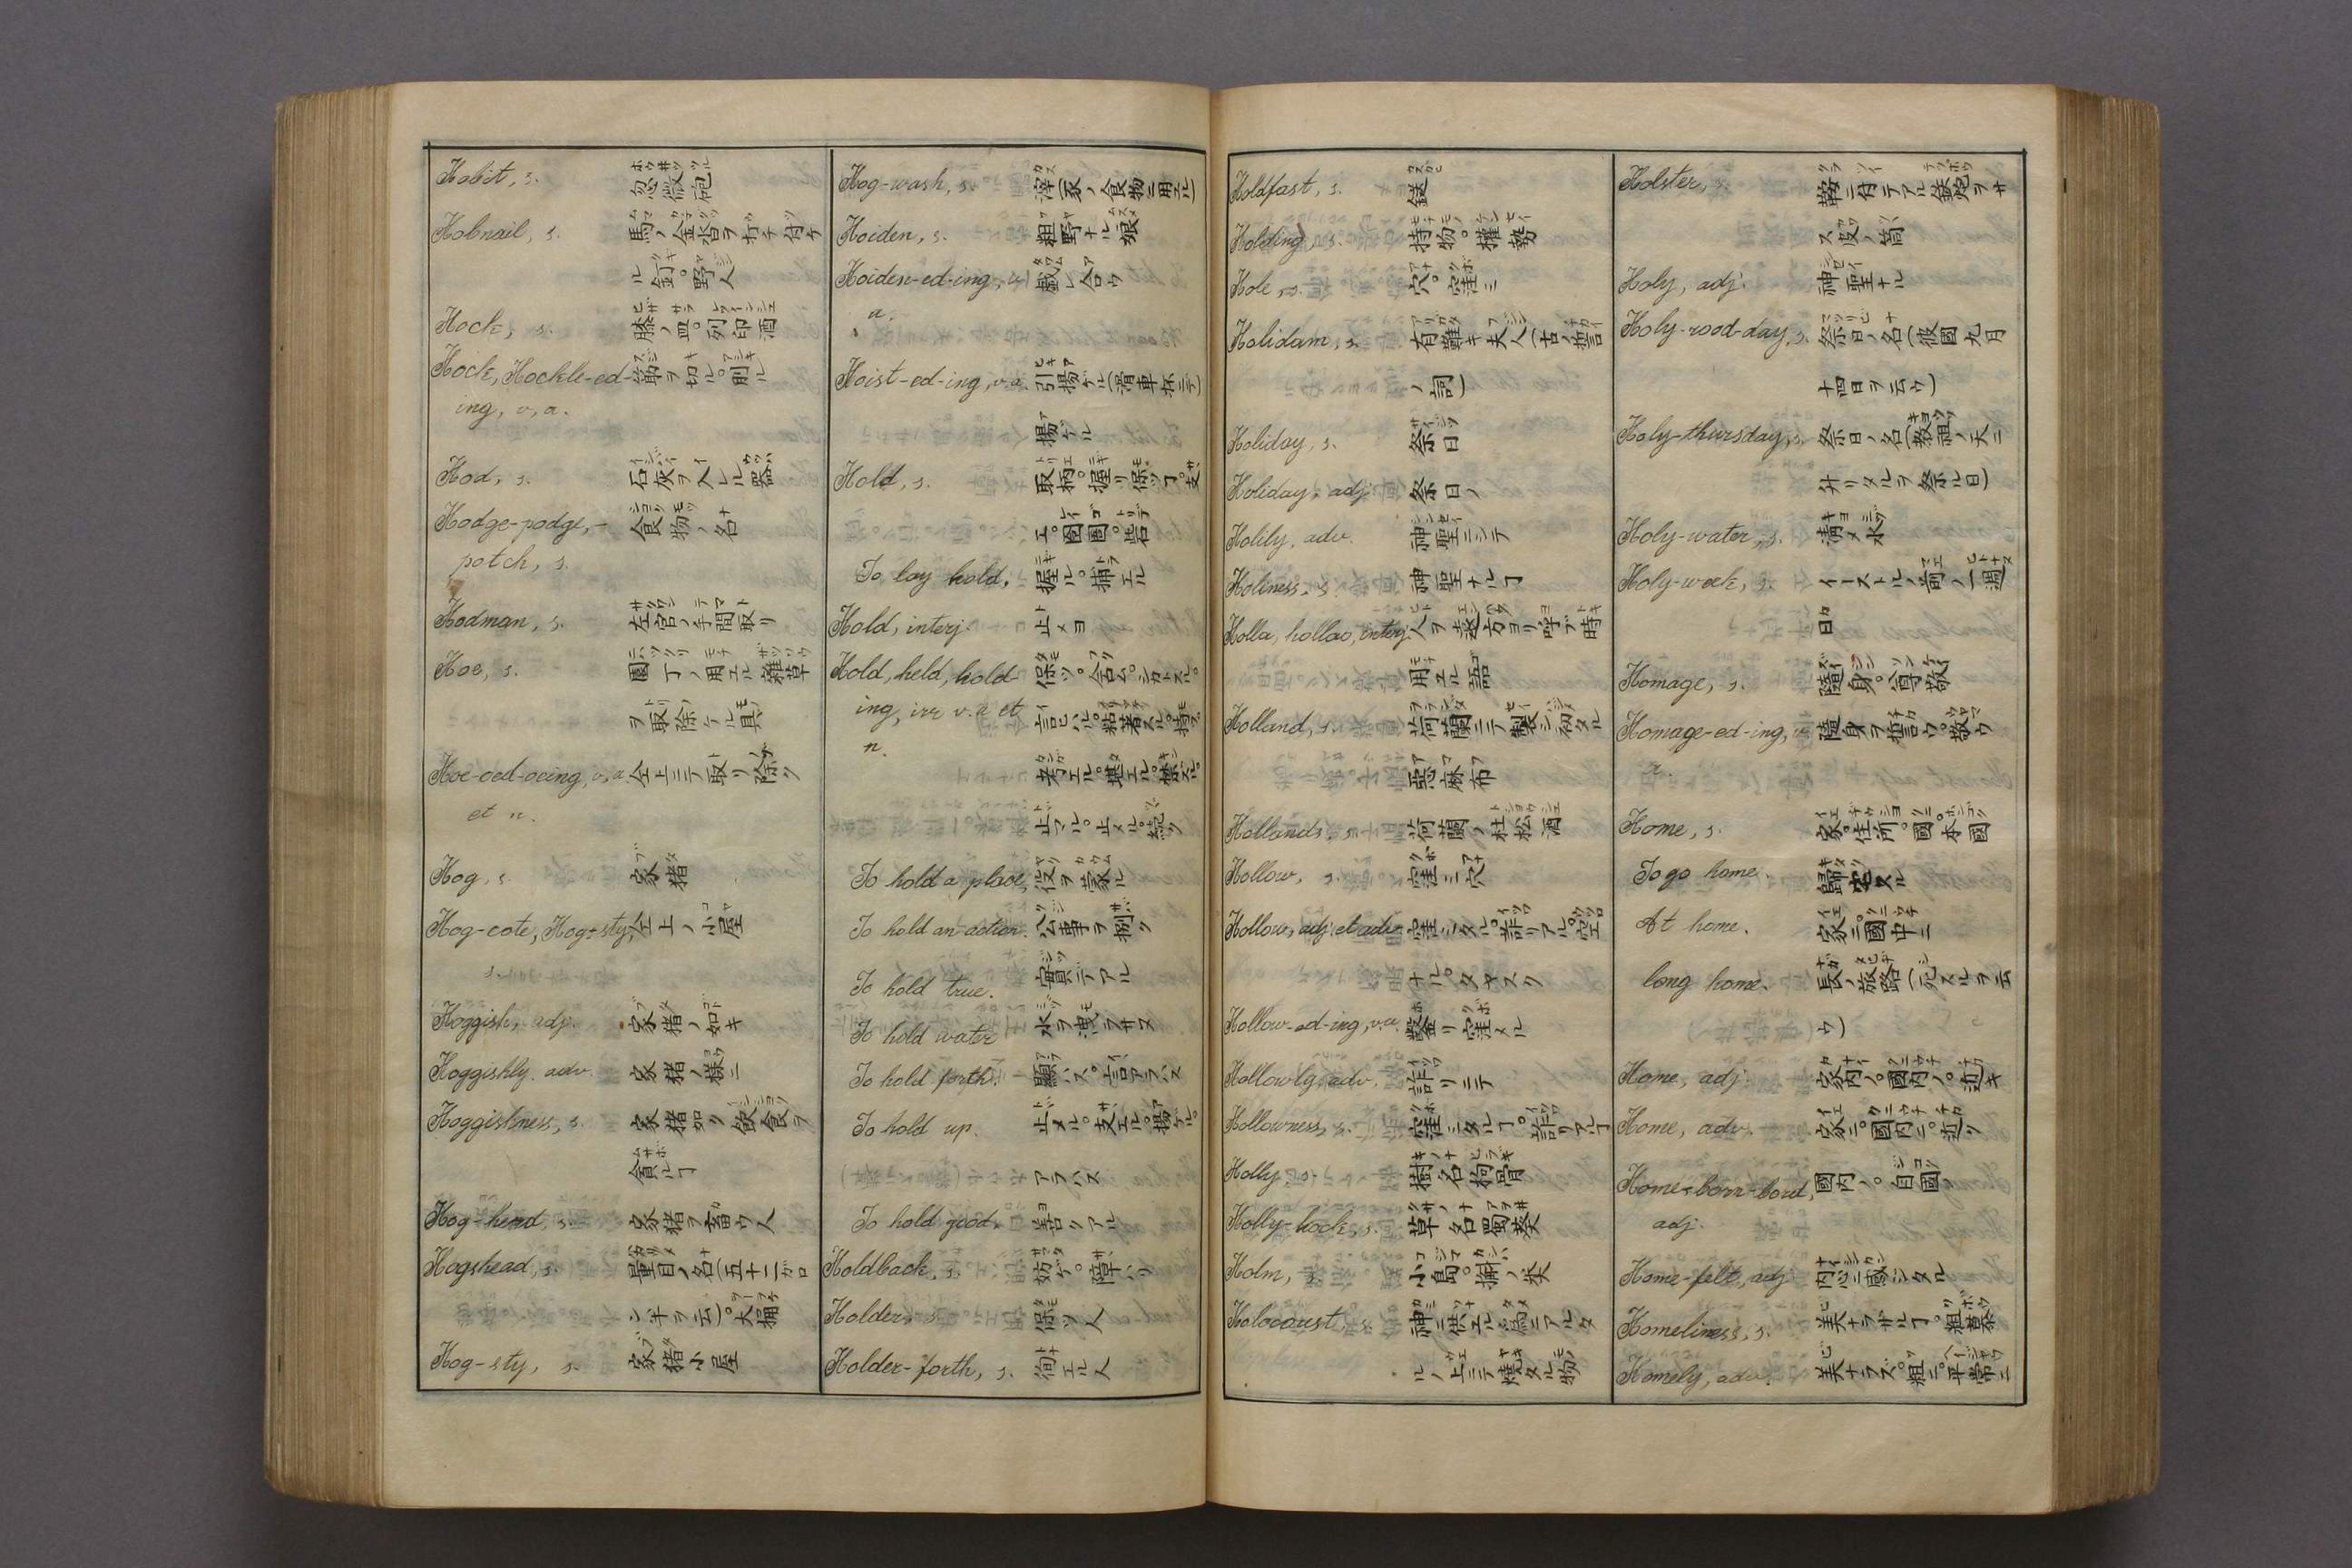 Hobit, s. 忽微砲
Hobnail, s. 馬ノ金沓ヲ打チ付ケ
ル釘。野人
Hock, s. 膝ノ皿。列印酒
Hock, Hockle-ed- 筋ヲ切ル。刖ル
ing, v, a.
Hod, s. 石灰ヲ入レル器
Hodge-podge,- 食物ノ名
potch, s.
Hodman, s. 左官ノ手間取リ
Hoe, s. 園丁ノ用エル雜草
ヲ取除ケル具
Hoe-oed-oeing, v, a. 仝上ニテ取リ除ク
et n.
Hog, s. 家猪
Hog-cote, Hog-sty, 仝上ノ小屋
s.
Hoggish, adj. 家猪ノ如キ
Hoggishly. adv. 家猪ノ樣ニ
Hoggishness, s. 家猪如ク飲食ヲ
貪ルヿ
Hog-herd, s. 家猪ヲ畜ウ人
Hogshead, s. 量目ノ名(五十二ガロ
ン半ヲ云)。大桶
Hog-sty, s. 家猪小屋
Hog-wash, s. 滓(豕ノ食物ニ用エル)
Hoiden, s. 粗野ナル娘
Hoiden-ed-ing, v. 戯レ合ウ
n.
Hoist-ed-ing, v.a. 引揚ゲル(滑車抔ニテ)
揚ゲル
Hold, s. 取柄。握リ保ツヿ。支
エ。囹圄。砦
To lay hold, 握ル。捕エル
Hold, interj. 止メヨ
Hold, held, hold- 保ツ。含ム。シカトスル。
ing, irr v. a et 言ヒハル。粘着スル。持ス。
n. 考エル。堪エル。禁ズル。
止マル。止メル。続ク
To hold a place, 役ヲ蒙ル
To hold an action. 公事ヲ捌ク
To hold true. 實デアル
To hold water 水ヲ洩ラサヌ
To hold forth. 顯ハス。言アラハス
To hold up. 止メル。支エル。揚ゲル。
アラハス
To hold good. 善クアル
Holdback, s. 妨ゲ。障ハリ
Holder, s. 保ツ人
Holder-forth, s. 徇エル人
Holdfast, s. 鎹
Holding, s. 持物。權勢
Hole, s. 穴。窪ミ
Holidam, s. 有難キ夫人(古ノ誓言
ノ詞)
Holiday, s. 祭日
Holiday, adj. 祭日ノ
Holily, adv. 神聖ニシテ
Holiness, s. 神聖ナルヿ
Holla, hollao, interj. 人ヲ遠方ヨリ呼ブ時
用エル語
Holland, s. 荷蘭ニテ製シ初タル
悪麻布
Hollands, s. 荷蘭ノ杜松酒
Hollow, s. 窪ミ穴
Hollow, adj. et adv. 窪ミタル。詐リアル。空
ナル。タヤスク
Hollow-ed-ing, v.a. 鑿リ窪メル
Hollowly, adv. 詐リニテ
Hollowness, s. 窪ミタルヿ。詐リアルヿ
Holly 樹名枸骨
Holly-hock, s. 草名蜀葵
Holm, 小島。槲ノ類
Holocaust, s. 神ニ供エル爲ニアルタ
ルノ上ニテ燒タル物
Holster, s. 鞍ニ付テアル鉄炮ヲサ
ス皮ノ筒
Holy, adj. 神聖ナル
Holy-rood-day, s. 祭日ノ名(彼國九月
十四日ヲ云ウ)
Holy-thursday, s. 祭日ノ名(教祖ノ天ニ
升リタルヲ祭ル日)
Holy-water, s. 清メ水
Holy-week, s. イーストルノ前ノ一週
日
Homage, s. 隨身。尊敬
Homage-ed-ing, v. 隨身ヲ誓ウ。敬ウ
a.
Home, s. 家。住所。國。本國
To go home. 歸宅スル
At home. 家ニ。國中ニ
long home. 長ノ旅路(死スルヲ云
ウ)
Home, adj. 家内ノ。國内ノ。近キ
Home, adv. 家ニ。國内ニ。近ク
Home-born-bred, 國内ノ。自國ノ
adj.
Home-felt, adj. 内心ニ感ジタル
Homeliness, s. 美ナラザルヿ。粗葉
Homely, adv. 美ナラズ。粗ニ。平常ニ